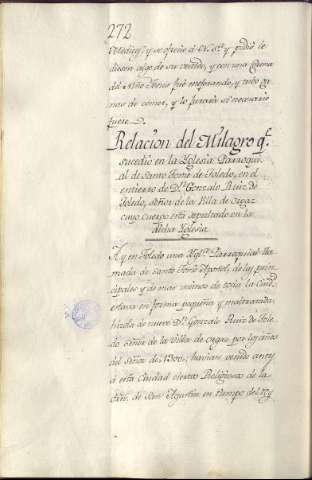 272
Medico, y se ofrecio á N. Sra. y pidió le
diesen algo de su vestido, y con una
del Niño Jesus fué mejorando, y tubo ga-
nas de comer, y lo jurara si necesario
fuere.
Relacion del Milagro q.e
sucedió en la Iglesia Parroqui-
al de Santo Tomé de Toledo, en el
entierro de D.n Gonzalo Ruiz de
Toledo, señor de la Villa de Orgaz
cuyo cuerpo está sepultado en la
dicha Iglesia
Ay en Toledo una Igl.a Parroquial lla-
mada de Santo Tomé Apostol, de las prin-
cipales y de mas vecinos de toda la Ciud.d
estava en forma pequeña y maltratada,
hizola de nuevo D.n Gonzalo Ruiz de Tole-
do señor de la Villa de Orgaz por los años
del Señor de 1300; havian venido antes
á esta Ciudad ciertos Religiosos de la
Orn. de San Agustin en tiempo del Rey